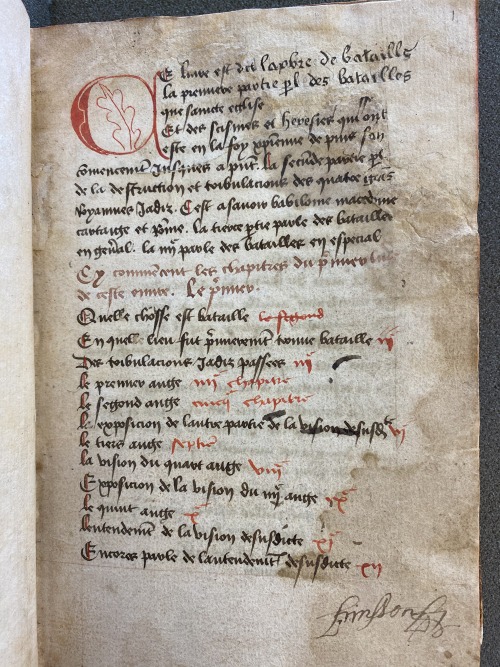 1
Ce livre est dit larbre de batailles
la premiere partie pl des batailles
que saincte eglise
Et des scismes et heresies qui ont
este en la foy xpienne de puis son
comencement Jusques a pnt. la secūde partie pl
de la destruction et tribulacions des quatre grās
Royaumes Jadiz. Cest asavoir babilonie macedonie
cartaige et Rōme. la tierce ptie parle des batailles
en gen̄al. la iiij parle des batailles en especial
Cy commencent les chapitres du pmier liv
de ceste euvre. Le p̄mier.
Quelle chosse est bataille le segond
En quel lieu fut p̄mierement trouve bataille iij
Des tribulacions Jadiz passees iiij
le premier ange chapitre
le segond ange chapitre
lexposicion de lautre partie de la vision desusd vi
le tiers ange septie
la vision du quart ange viij
Exposicion de la vision du iiij ange ix
le quint ange x
lentendemēt de la vision desusdicte xi
Encores parle de lentendemēt desusdicte xii